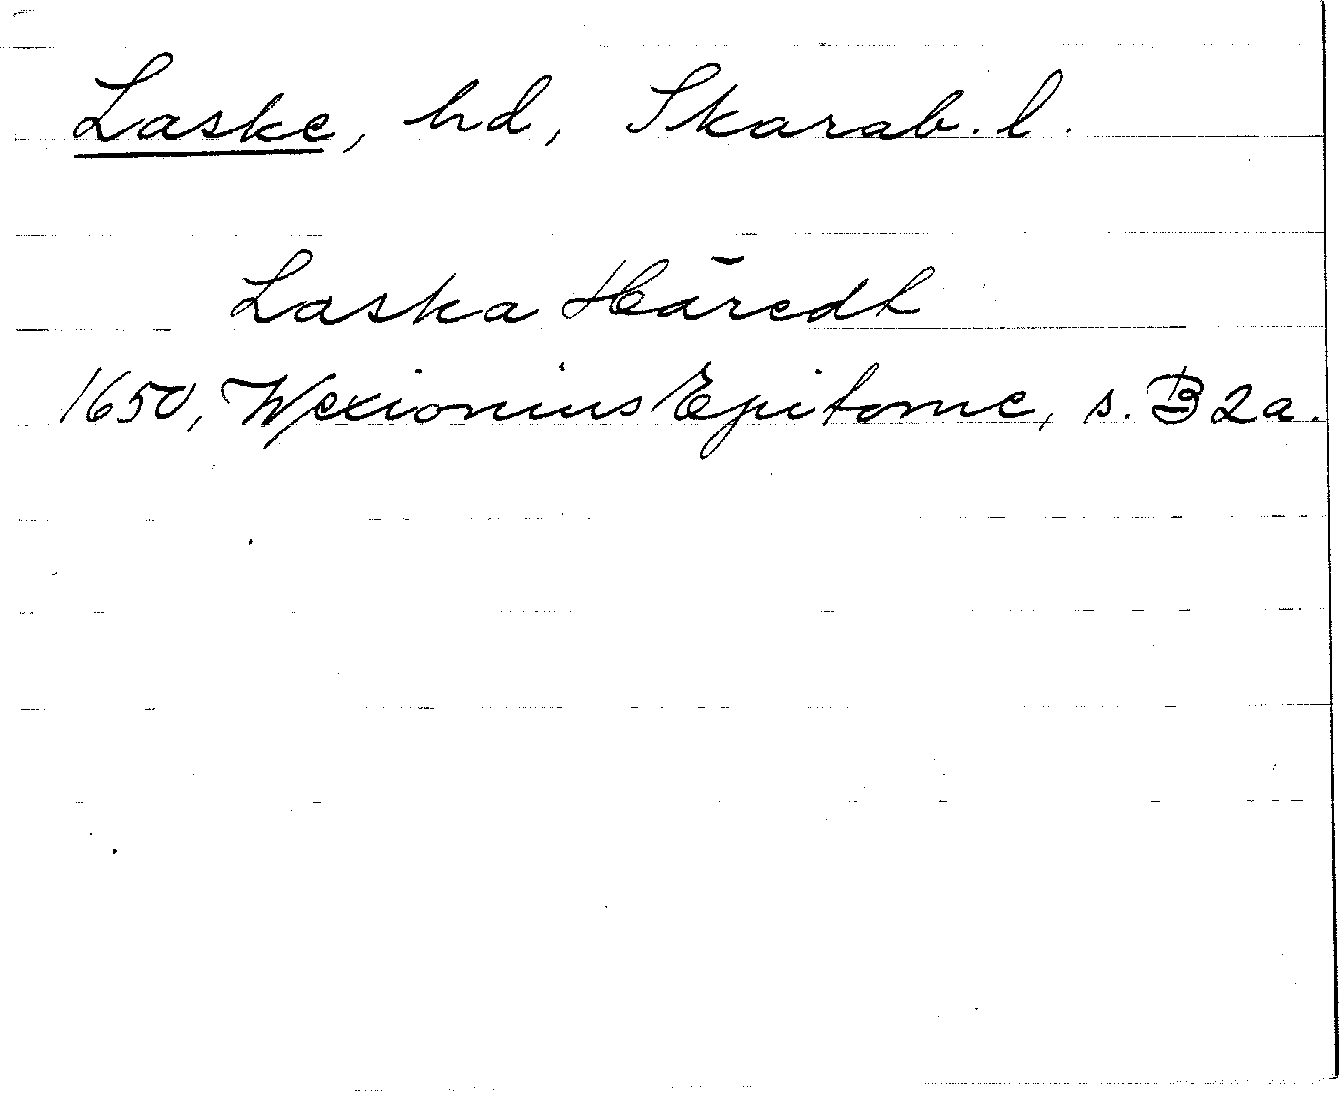 Laske, hd, Skarab. l.
Laska Häredt
1650, Wexionius Epitome, s. B2a.